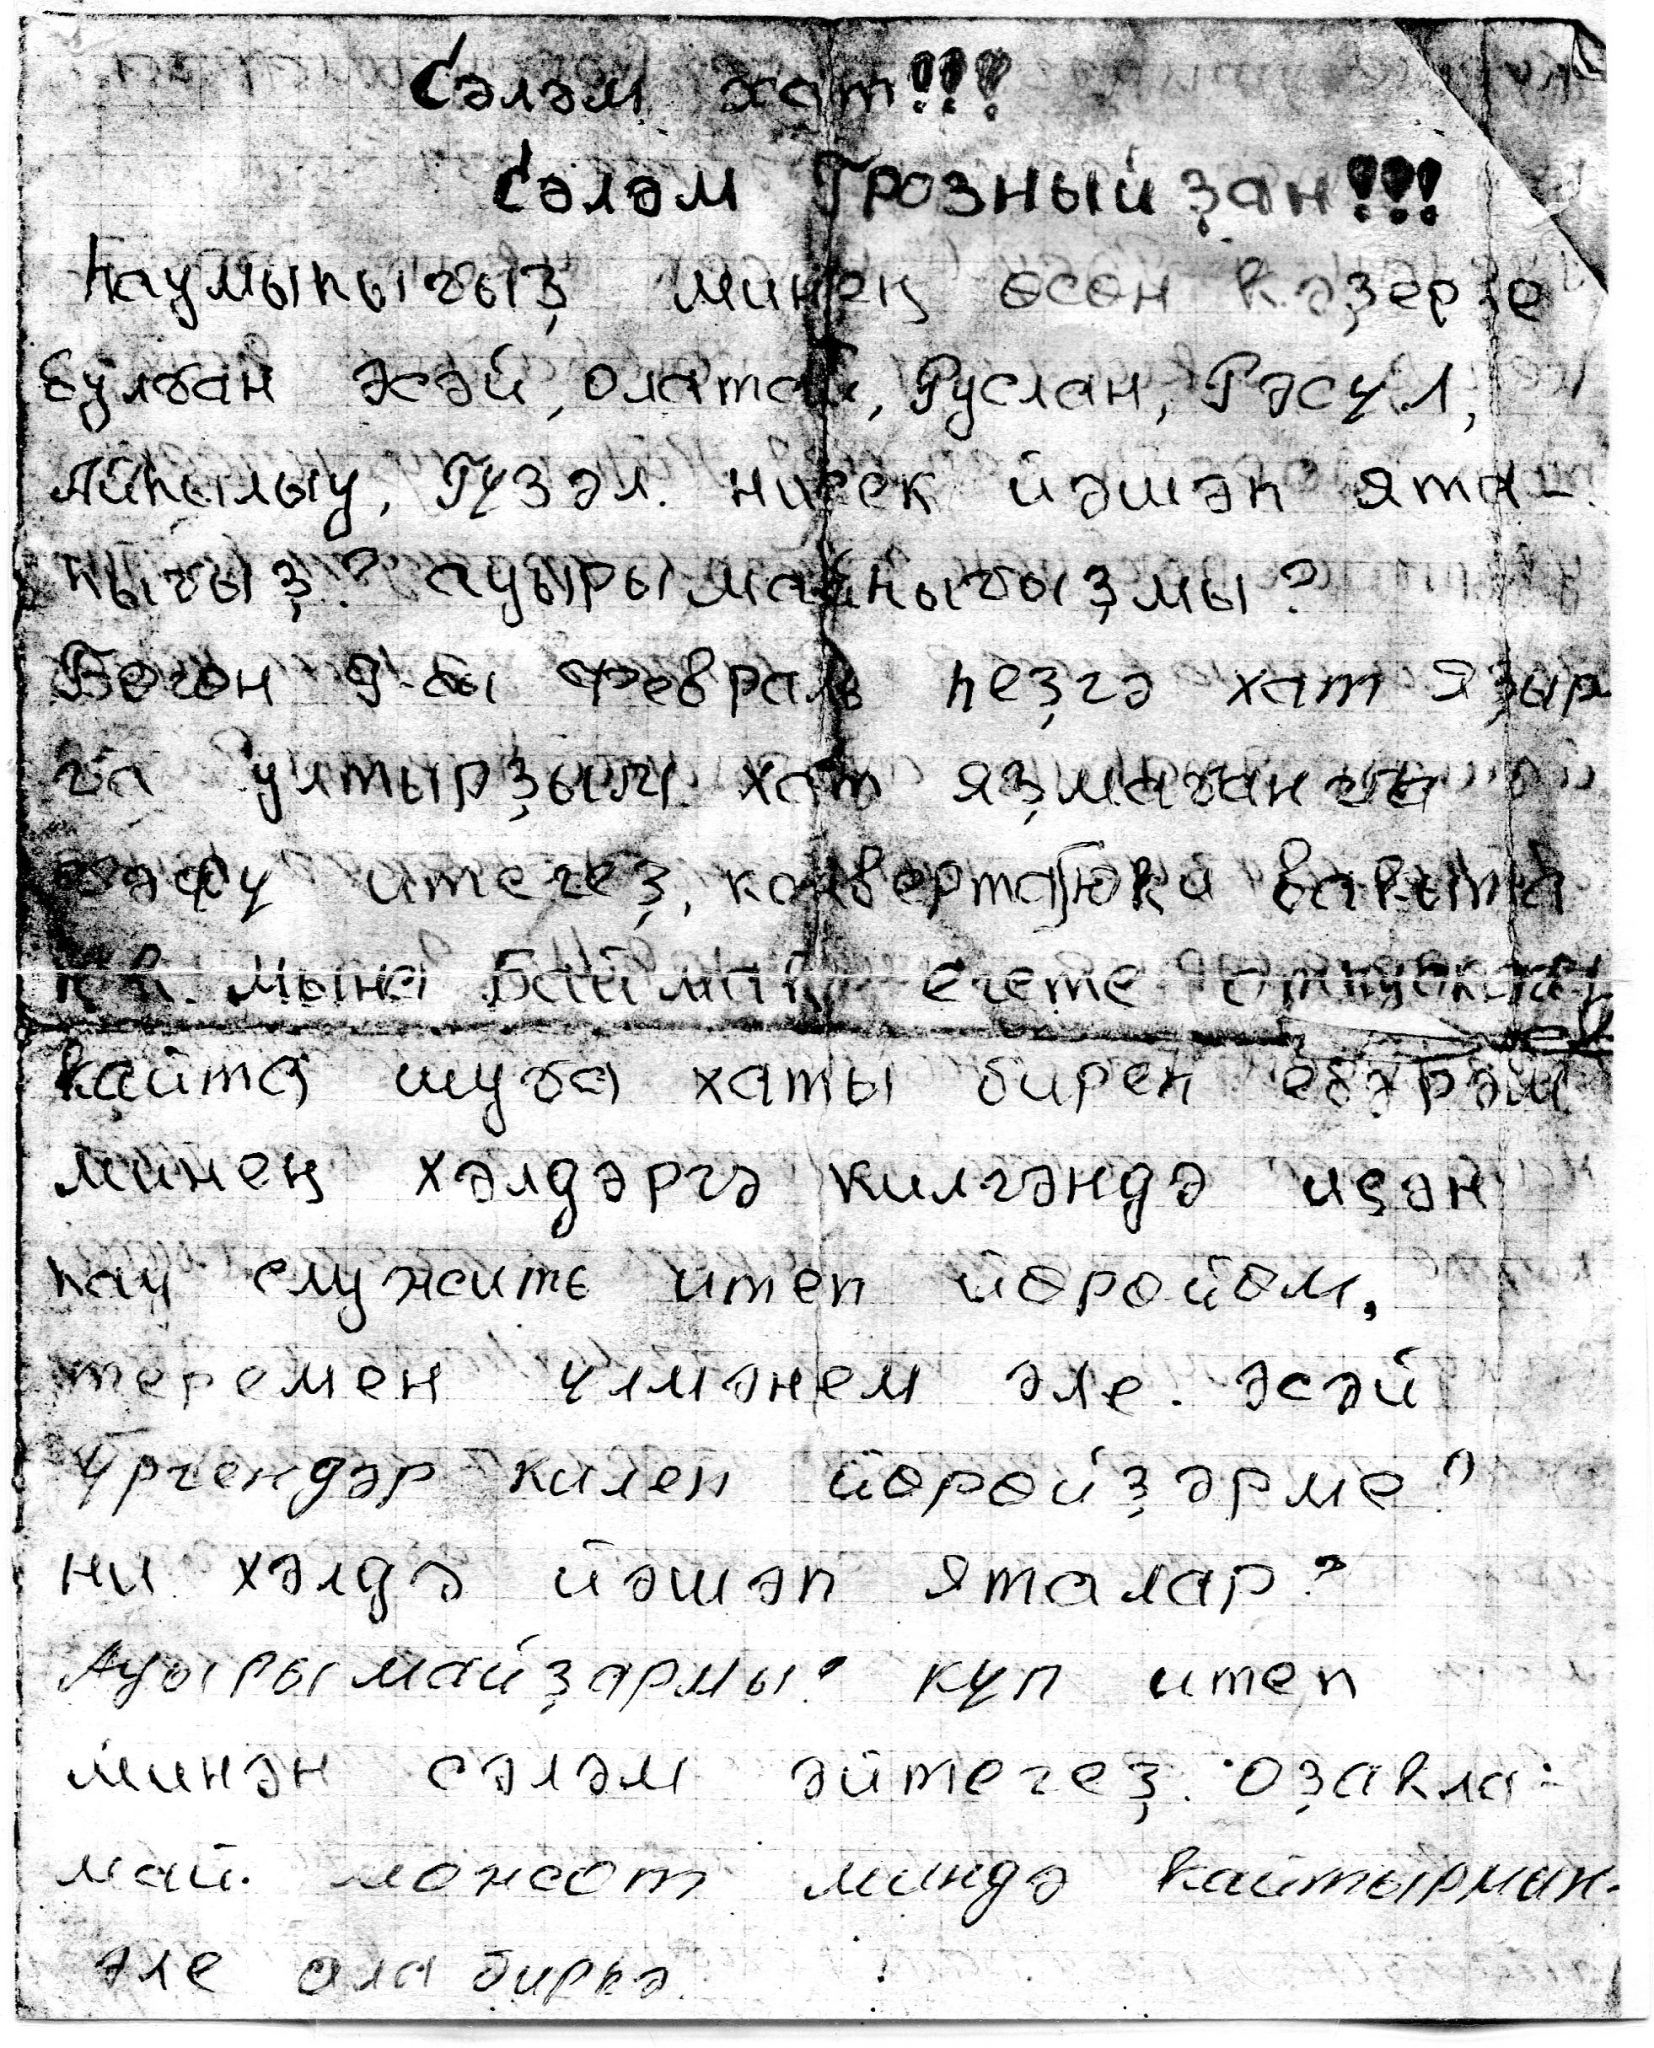 Сәләм хат!!!
Сәләм Грозныйҙан!!!
Һаумыһығыҙ минең өсөн ҡәҙерле
булған әсәй, олатай, Руслан, Рәсүл,
Айһылыу, Гүзәл. нисек йәшәп ята-
һығыҙ? ауырымайһығыҙмы?
Бөгөн 9-ы февраль һеҙгә хат яҙыр
ға ултырҙым. хат яҙмағанға
ғәфү итегеҙ, конверта юҡ и ваҡытта
юҡ. мына Баймаҡ егете отпускаға
ҡайта шуға хаты биреп ебәрәм
минең хәлдәргә килгәндә иҫән
һау служить итеп йөрөйөм,
теремен үлмәнем әле. әсәй
Үргендәр килеп йөрөйҙәрме?
ни хәлдә йәшәп яталар?
Ауырымайҙармы? күп итеп
минән сәләм әйтегеҙ. оҙаҡла-
май. можот миндә ҡайтырмын.
әле ала бирһә.